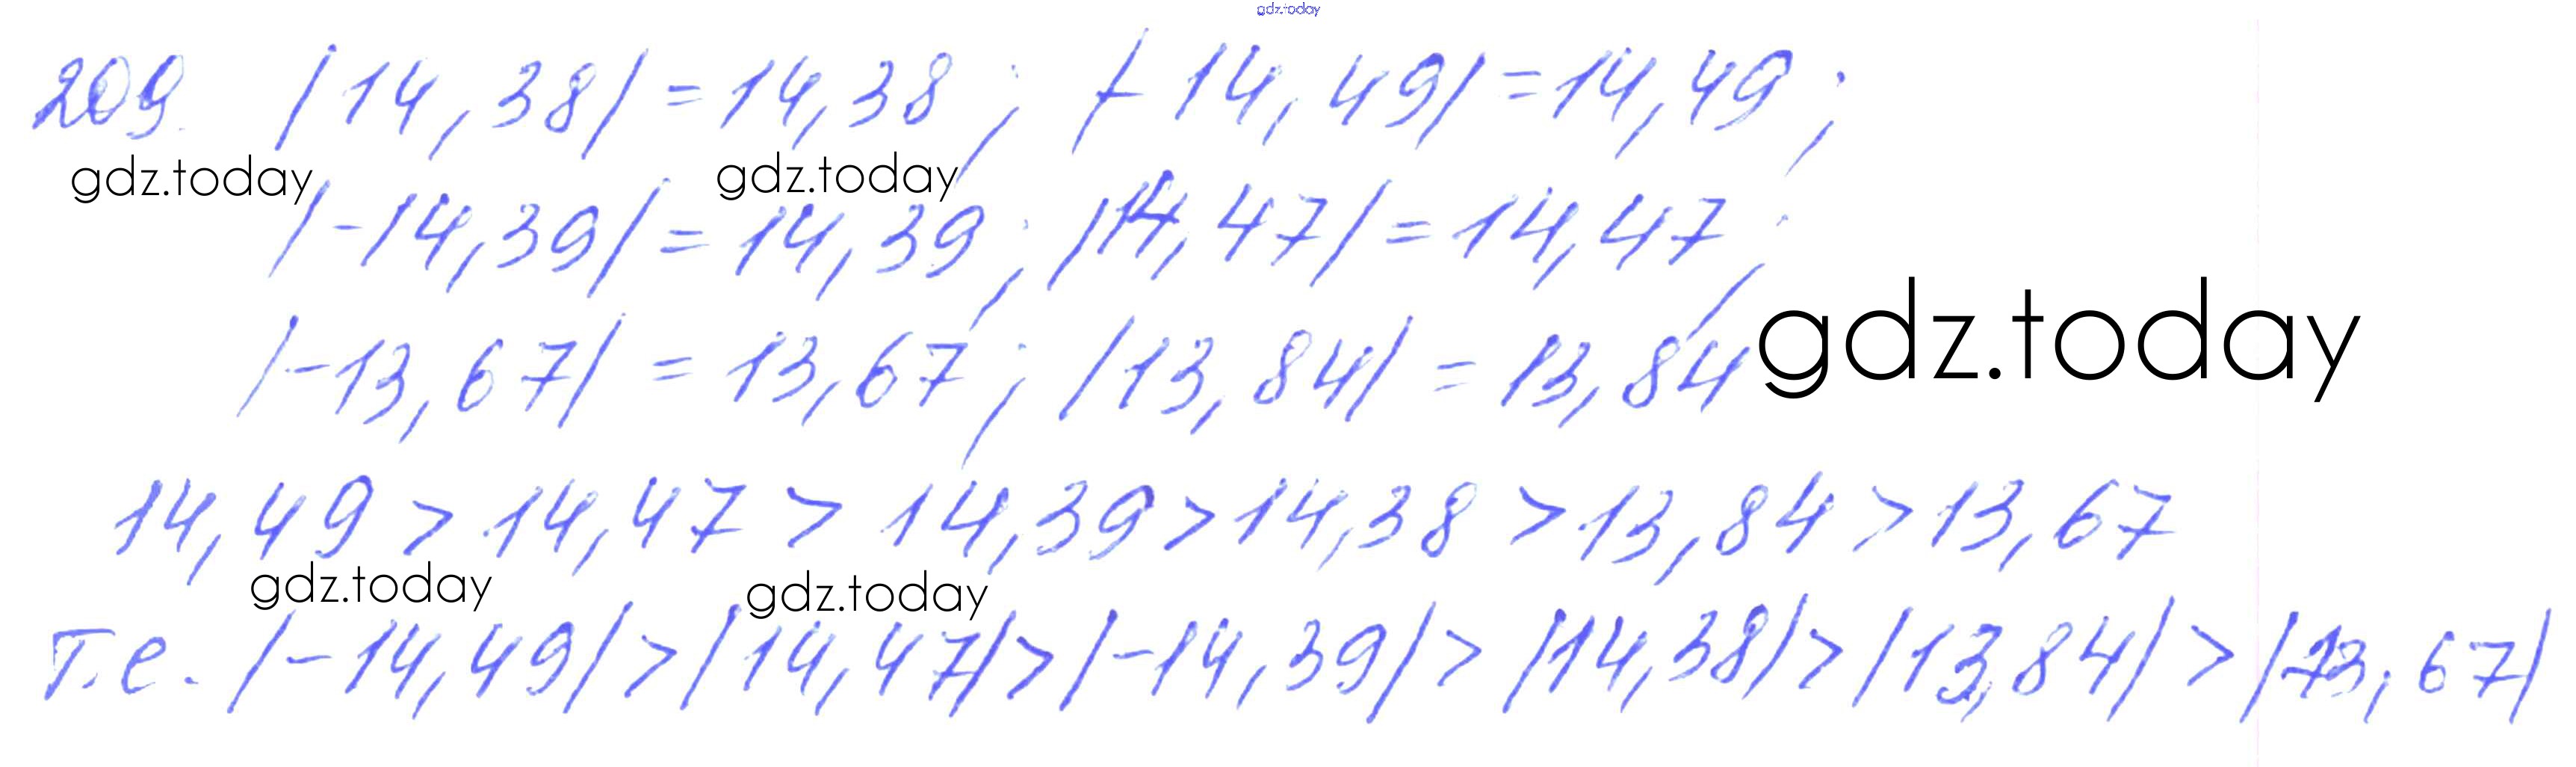 gdz.today
209. |14,38| = 14,38; |-14,49| = 14,49;
gdz.today gdz.today
|-14,39| = 14,39; |14,47| = 14,47;
|-13,67| = 13,67; |13,84| = 13,84
gdz.today
14,49 > 14,47 > 14,39 > 14,38 > 13,84 > 13,67
gdz.today gdz.today
т.е. |-14,49| > |14,47| > |-14,39| > |14,38| > |13,84| > |-13,67|